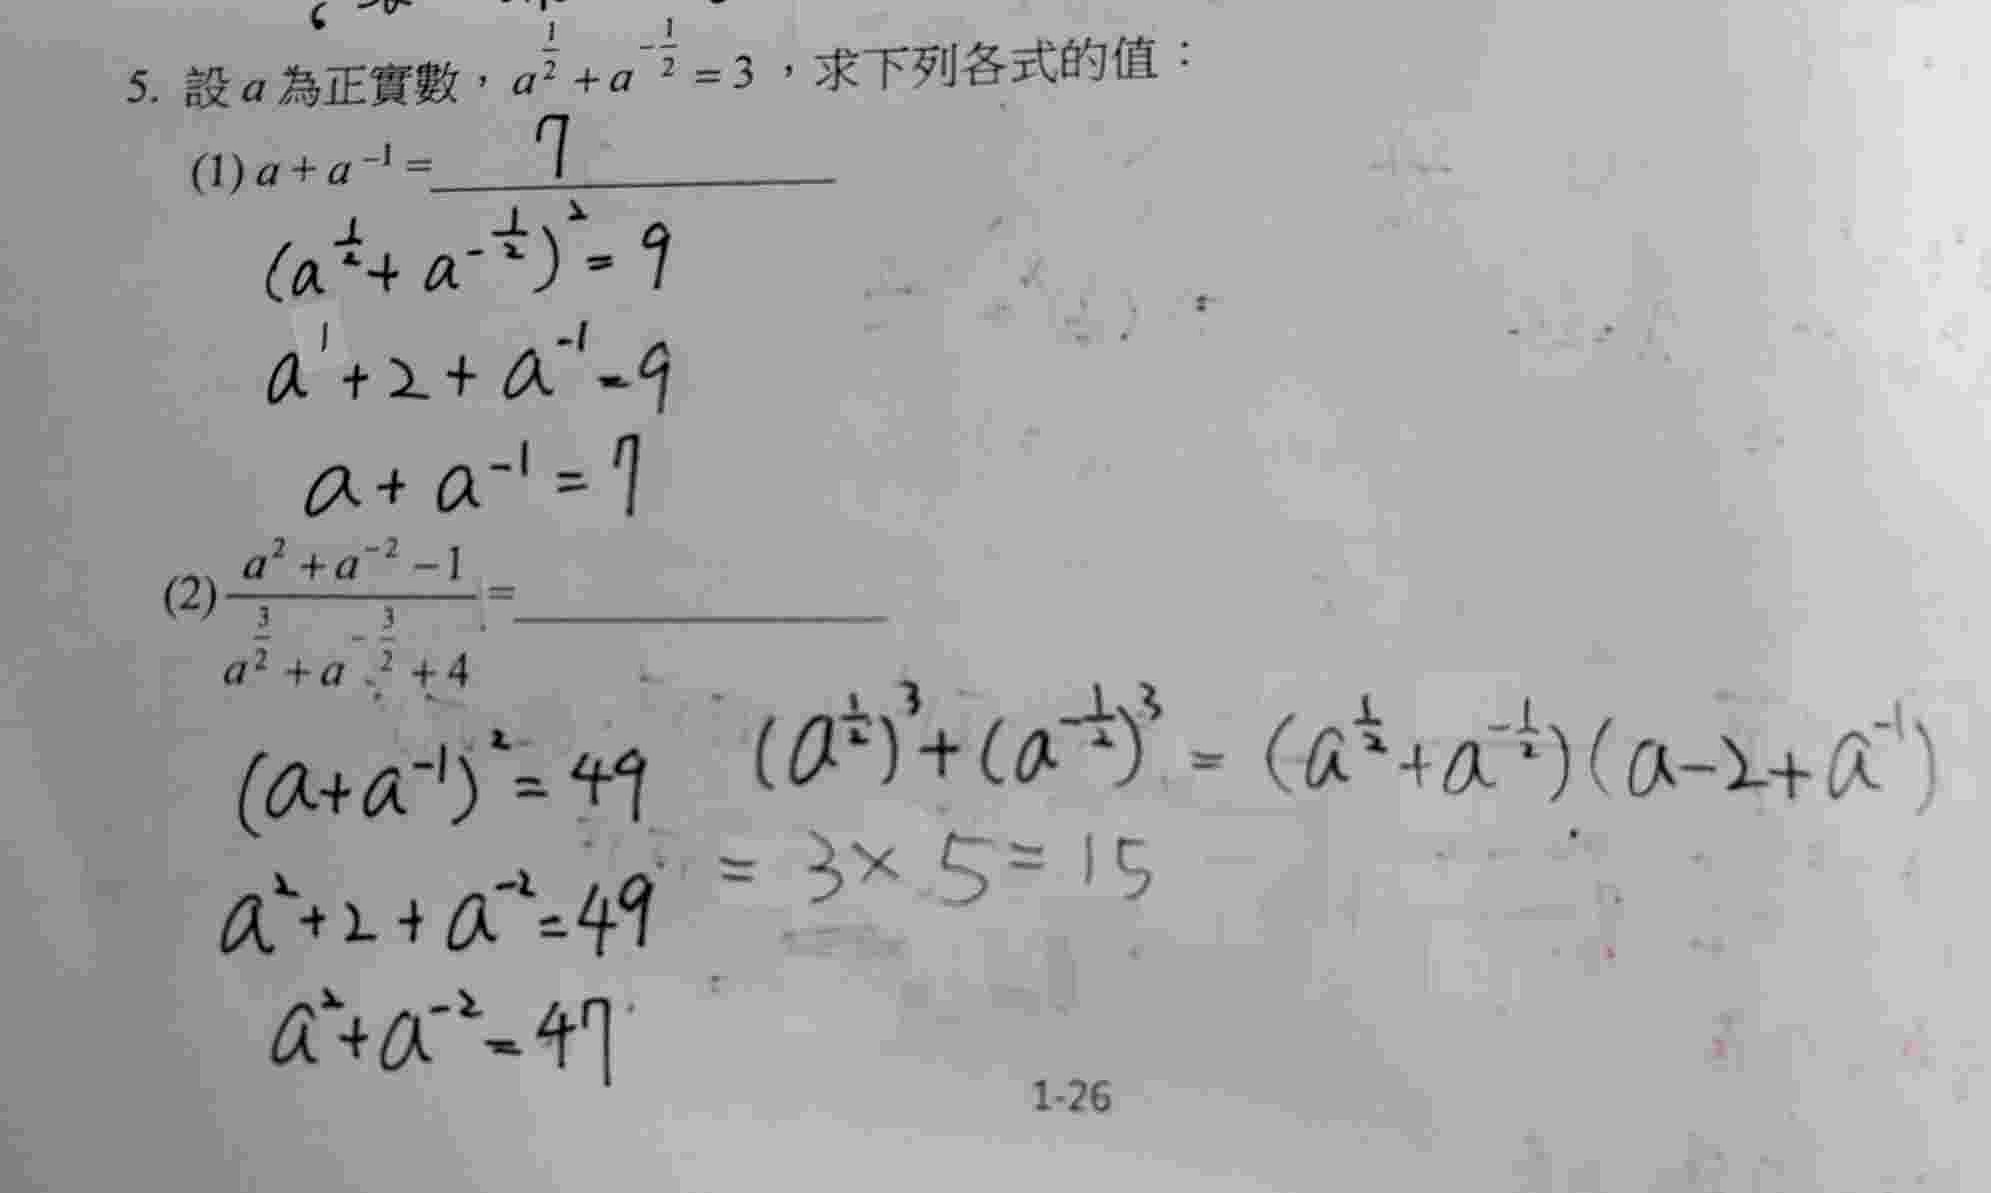 5. 設 a 為正實數，a^{\frac{1}{2}} + a^{-\frac{1}{2}} = 3，求下列各式的值：
(1) a + a^{-1} = 7
(a^{\frac{1}{2}} + a^{-\frac{1}{2}})^2 = 9
a^1 + 2 + a^{-1} = 9
a + a^{-1} = 7
(2) \frac{a^2 + a^{-2} - 1}{a^{\frac{3}{2}} + a^{-\frac{3}{2}} + 4} =
(a + a^{-1})^2 = 49
a^2 + 2 + a^{-2} = 49
a^2 + a^{-2} = 47
(a^{\frac{1}{2}})^3 + (a^{-\frac{1}{2}})^3 = (a^{\frac{1}{2}} + a^{-\frac{1}{2}})(a - 2 + a^{-1})
= 3 × 5 = 15
1-26